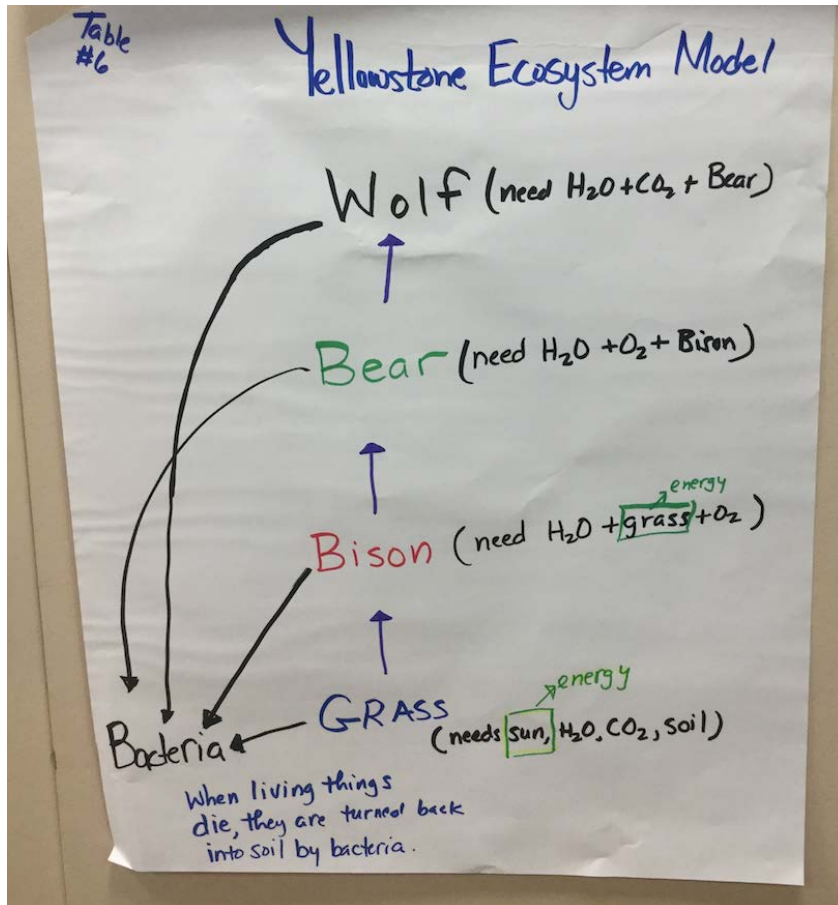 Table
#6
Yellowstone Ecosystem Model
Wolf (need H₂O+CO₂ + Bear)
Bear (need H₂O +O₂+ Bison)
energy
Bison (need H₂O +grass+O₂)
energy
GRASS
(needs sun, H₂O, CO₂, soil)
Bacteria
When living things
die, they are turned back
into soil by bacteria.